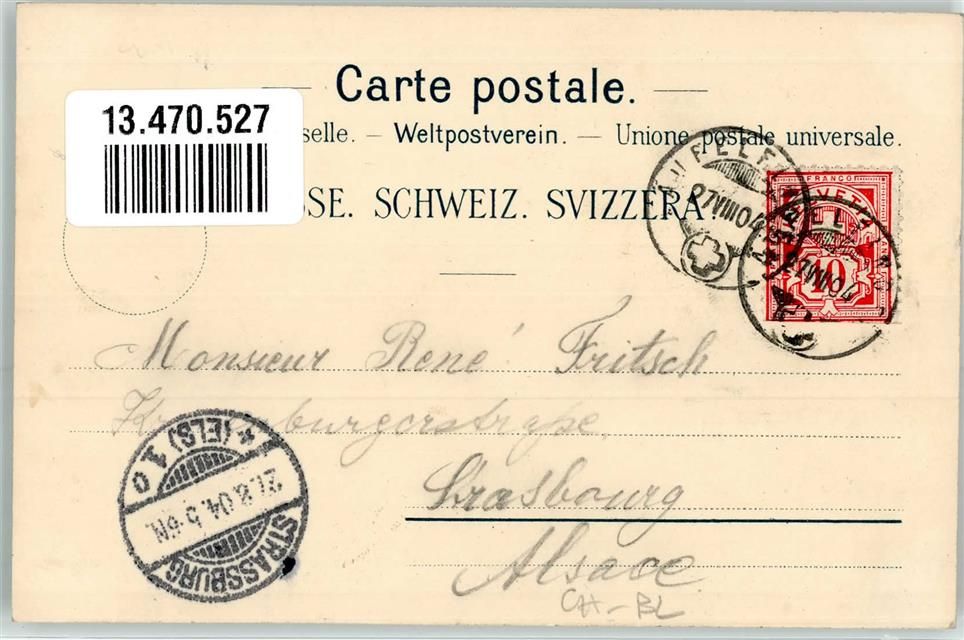 Carte postale.
13.470.527
selle. — Weltpostverein. — Unione postale universale.
SSE. SCHWEIZ. SVIZZERA.
LAUFELF
27 VIII 04
FRANCO
HELVETIA
10
27 VIII 04
Monsieur René Fritsch
Strasbourg
Alsace
CH-BL
STRASSBURG
* (ELS) 1 0